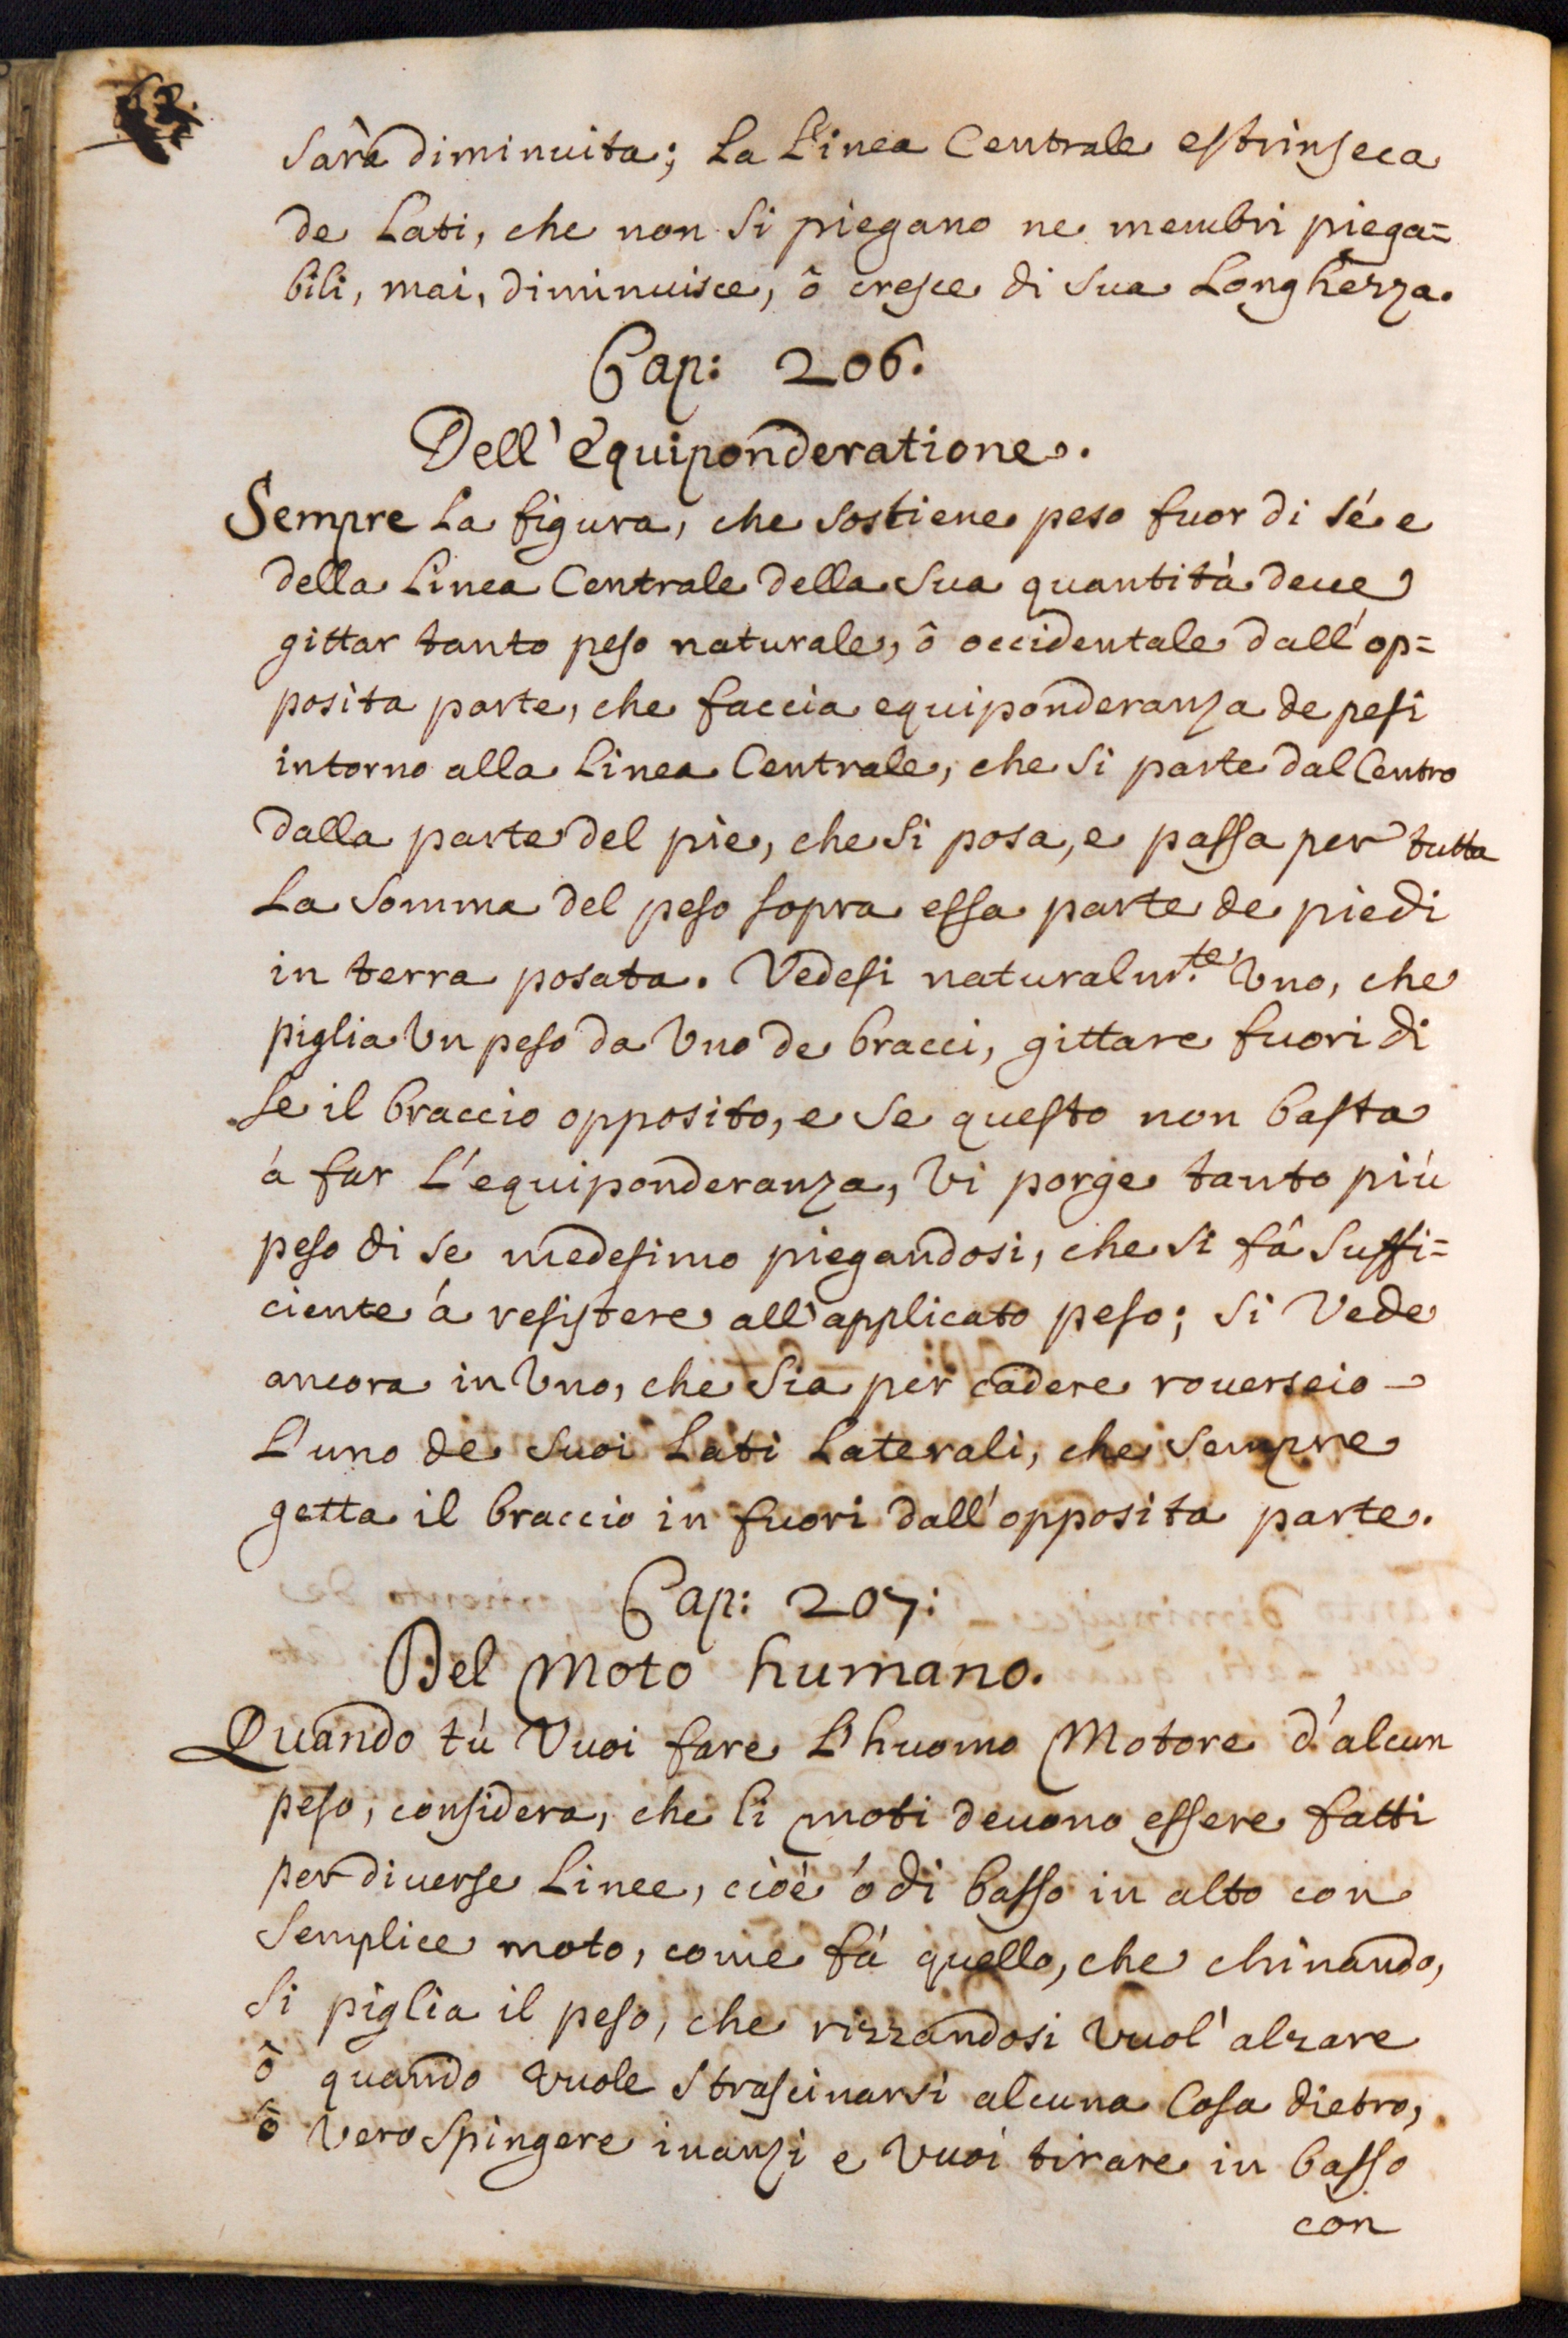 Sarà diminuita; La Linea Centrale estrinseca
de Lati, che non Si piegano ne membri piega=
bili, mai, diminuisce, ô cresce di Sua Longhezza.
Cap: 206.
Dell'équiponderatione.
Sempre La figura, che sostiene peso fuor di sé e
della Linea Centrale della Sua quantità deue
gittar tanto peso naturale, ô occidentale dall'op=
posita parte, che faccia equiponderanza de pesi
intorno alla Linea Centrale, che Si parte dal Centro
dalla parte del pie, che Si posa, e passa per tutta
La Somma del peso sopra essa parte de piedi
in terra posata. Vedesi naturalm.te Vno, che
piglia Vn peso da Vno de bracci, gittare fuori di
se il braccio opposito, e Se questo non basta
á far L'equiponderanza, Vi porge tanto piú
peso di se medesimo piegandosi, che Si fâ Suffi=
ciente á resistere all'applicato peso; Si Vede
ancora in Vno, che Sia per cadere rouerscio
L'uno de Suoi Lati Laterali, che Sempre
getta il braccio in fuori dall'opposita parte.
Cap: 207:
Del Moto humano.
Quando tú Vuoi fare L'huomo Motore d'alcun
peso, considera, che li moti deuono essere fatti
per diuerse Linee, cioé ó di basso in alto con
Semplice moto, come fá quello, che chinando,
Si piglia il peso, che rizzandosi Vuol'alzare
ô quando Vuole Strascinarsi alcuna Cosa dietro,
ô Vero Spingere inanzi e Vuoi tirare in basso
con